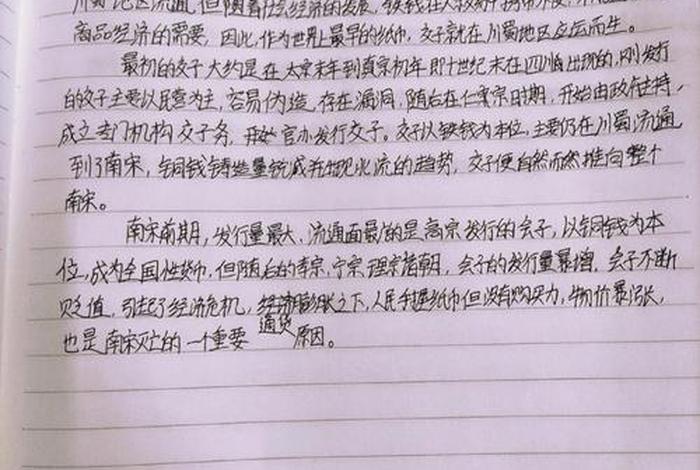 川蜀地区流通,但随着社会经济的发展,铁钱在人
商品经济的需要,因此,作为世界上最早的纸币,交子就在川蜀地区应运而生。
最初的交子大约是在太宗末年到真宗初年即十世纪末在四川出现的,刚发行
的交子主要以民营为主,容易伪造,存在漏洞,随后在仁宗时期,开始由政府主持,
成立专门机构交子务,开始官办发行交子。交子以铁钱为本位,主要仍在川蜀流通
到了南宋,铜钱铸造量锐减并出现北流的趋势,交子便自然而然推向整个
南宋。
南宋前期,发行量最大、流通面最广的是高宗发行的会子,以铜钱为本
位,成为全国性货币,但随后的孝宗、宁宗理宗诸朝,会子的发行量暴增,会子不断
贬值,引起了经济危机,通货膨胀之下,人民手握纸币但没有购买力,物价暴涨,
也是南宋灭亡的一个重要原因。